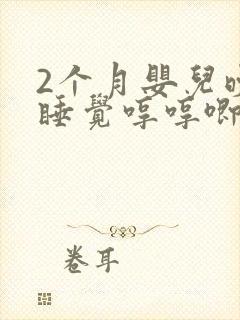 2个月嬰兒
睡覺哼哼唧
卷耳